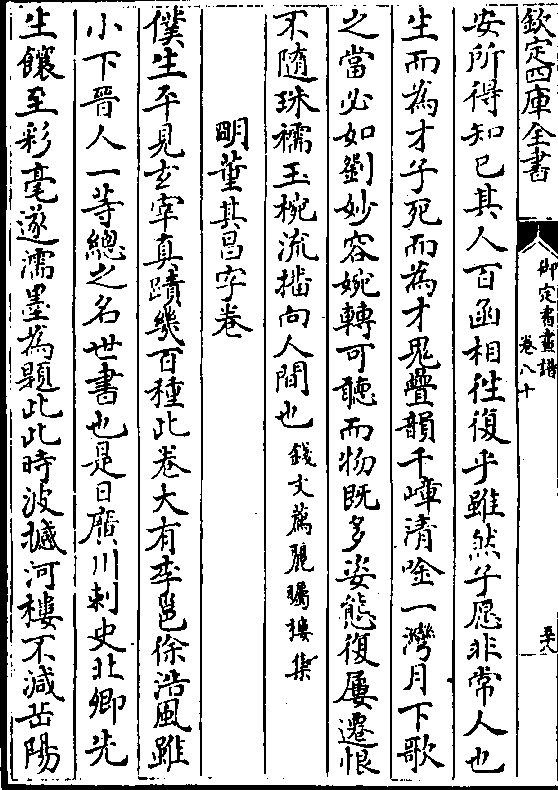 欽定四庫全書
御定書畫譜
卷八十
安所得知已其人百函相徃復乎雖然子愿非常人也
生而為才子死而為才鬼疊韻千嶂清唫一灣月下歌
之當必如劉妙容婉轉可聽而物既多姿態復屢遷恨
不隨珠襦玉椀流播向人間也錢文薦麗矚樓集
明董其昌字卷
僕生平見𤣥宰真蹟幾百種此卷大有李邕徐浩風雖
小下晉人一等總之名世書也是日廣川刺史北卿先
生饟至彩毫遂濡墨為題此此時波撼河樓不減岳陽